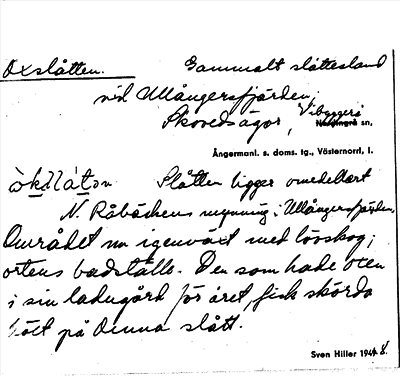 Oxslåtten. Gammalt slåttesland
vid Ullångersfjärden;
Skovedsägor, Vibyggerå
Nordingrå sn,
Ångermanl. s. doms. tg., Västernord, l.
Slåtten ligger omedelbart
N. Råbäckens mynning i Ullångersfjärden.
Området nu igenväxt med lövskog;
ortens badställe. Den som hade oxen
i sin ladugård för året, fick skörda
höet på denna slått.
Sven Hiller 194